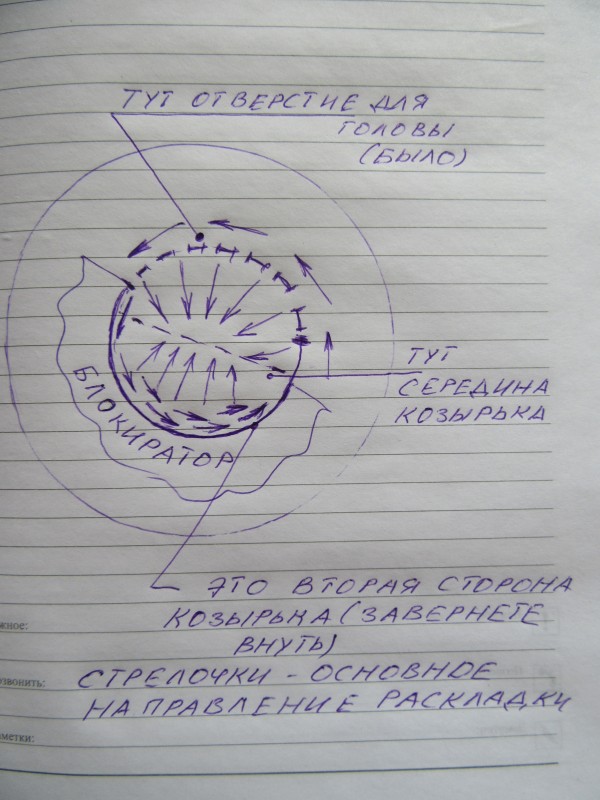 ТУТ ОТВЕРСТИЕ ДЛЯ
ГОЛОВЫ
(БЫЛО)
ТУТ
СЕРЕДИНА
КОЗЫРЬКА
БЛОКИРАТОР
ЭТО ВТОРАЯ СТОРОНА
КОЗЫРЬКА (ЗАВЕРНЕТЕ
ВНУТЬ)
СТРЕЛОЧКИ - ОСНОВНОЕ
НАПРАВЛЕНИЕ РАСКЛАДКИ
жное:
озвонить:
метки: